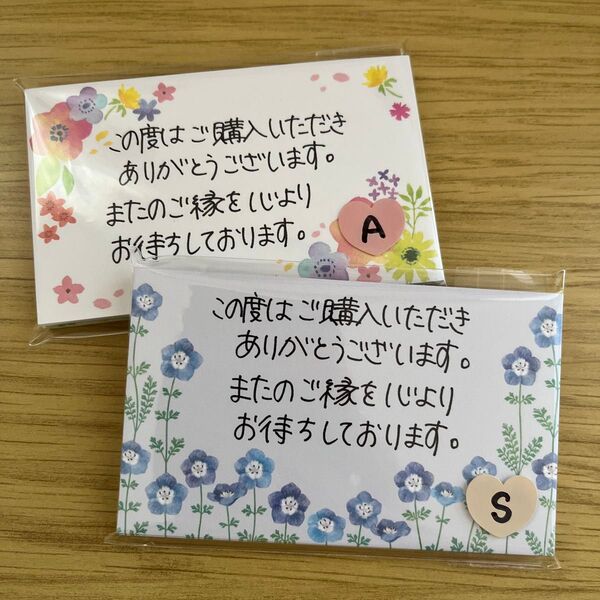 この度はご購入いただき
ありがとうございます。
またのご縁を心より
お待ちしております。
A
この度はご購入いただき
ありがとうございます。
またのご縁を心より
お待ちしております。
S